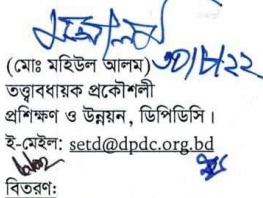 (মোঃ মহিউল আলম) ৩০/৮/২২
তত্ত্বাবধায়ক প্রকৌশলী
প্রশিক্ষণ ও উন্নয়ন, ডিপিডিসি।
ই-মেইল: setd@dpdc.org.bd
বিতরণ: